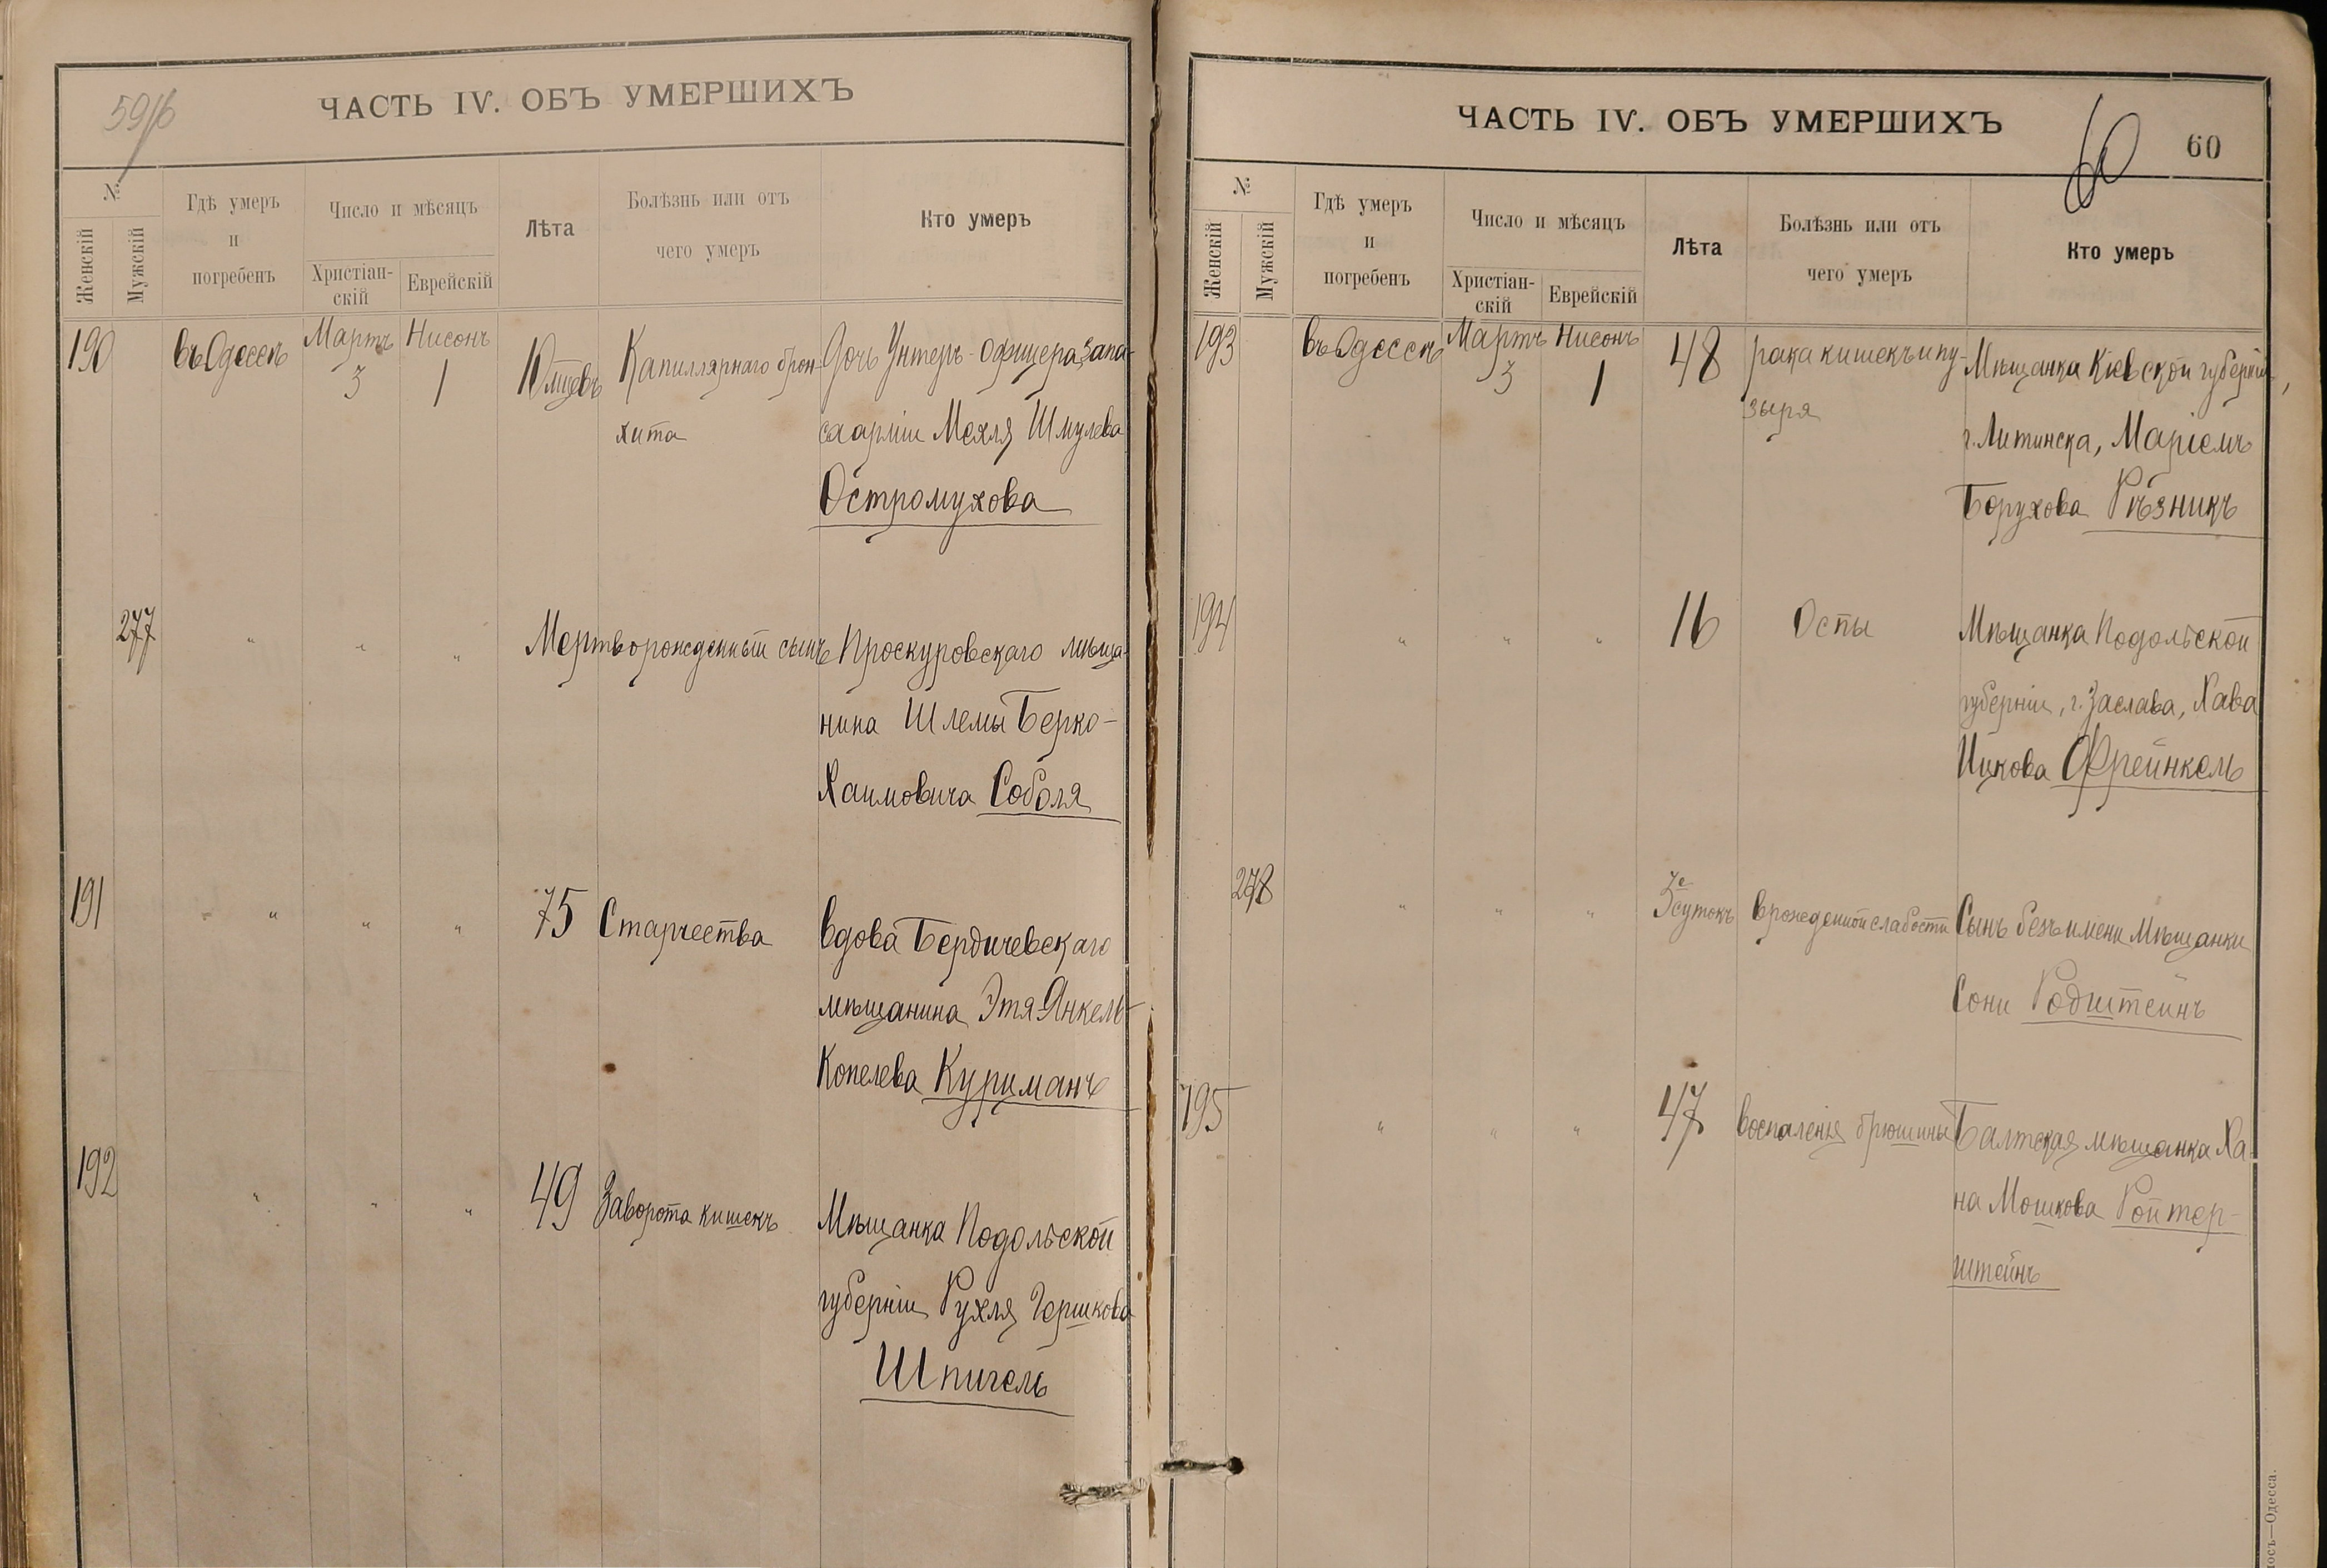 59 1/б
ЧАСТЬ IV. ОБЪ УМЕРШИХЪ
№
Женскій
Мужскій
Гдѣ умеръ
и
погребенъ
Число и мѣсяцъ
Христіан-
скій
Еврейскій
Лѣта
Болѣзнь или отъ
чего умеръ
Кто умеръ
190 въ Одессѣ Мартъ 3 Нисонъ 1 10 мцевъ Капиллярнаго брон- Дочь Унтеръ-Офицера запа-
хита са арміи Мехля Шмулева
Остромухова
277 " " " Мертворожденный сынъ Проскуровскаго мѣща-
нина Шлемы Берко-
Хаимовича Соболя
191 " " " 75 Старчества Вдова Бердичевскаго
мѣщанина Этя Янкель-
Копелева Курцманъ
192 " " " 49 Заворота кишекъ Мѣщанка Подольской
губерніи Рухля Гершкова
Шпигель
ЧАСТЬ IV. ОБЪ УМЕРШИХЪ
60
60
№
Женскій
Мужскій
Гдѣ умеръ
и
погребенъ
Число и мѣсяцъ
Христіан-
скій
Еврейскій
Лѣта
Болѣзнь или отъ
чего умеръ
Кто умеръ
193 въ Одессѣ Мартъ 3 Нисонъ 1 48 рака кишекъ и пу- Мѣщанка Кіевской губерніи,
зыря г. Литинска, Маріемъ
Борухова Рѣзникъ
194 " " " 16 Оспы Мѣщанка Подольской
губерніи, г. Заслава, Хава
Ицкова Фрейнкель
278 " " " 3е сутокъ врожденной слабости Сынъ безъ имени Мѣщанки
Сони Родштейнъ
195 " " " 47 воспаленія брюшины Балтская мѣщанка Ха-
на Мошкова Ройтер-
штейнъ
—Одесса.